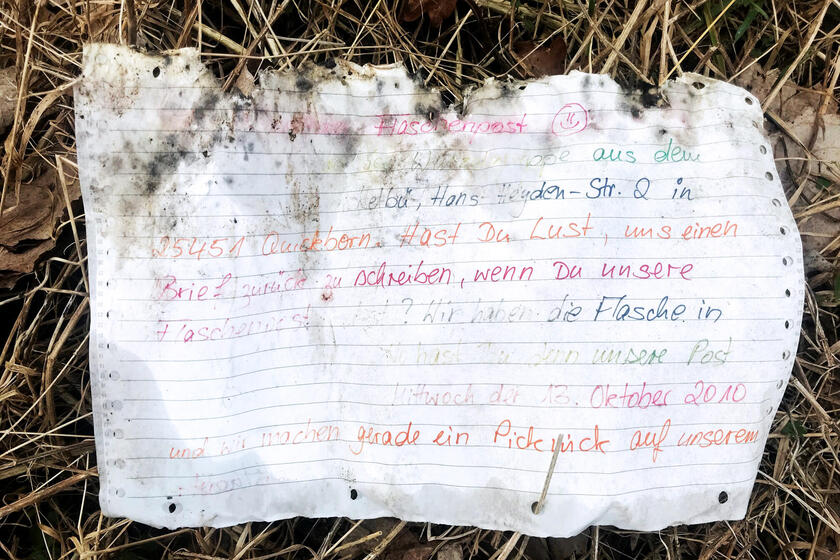 Flaschenpost
aus dem
Hans-Heyden-Str. 2 in
25451 Quickborn. Hast Du Lust, uns einen
Brief zurück zu schreiben, wenn Du unsere
Flaschenpost ? Wir haben die Flasche in
hast Du denn unsere Post
Mittwoch der 13. Oktober 2010
und wir machen gerade ein Picknick auf unserem